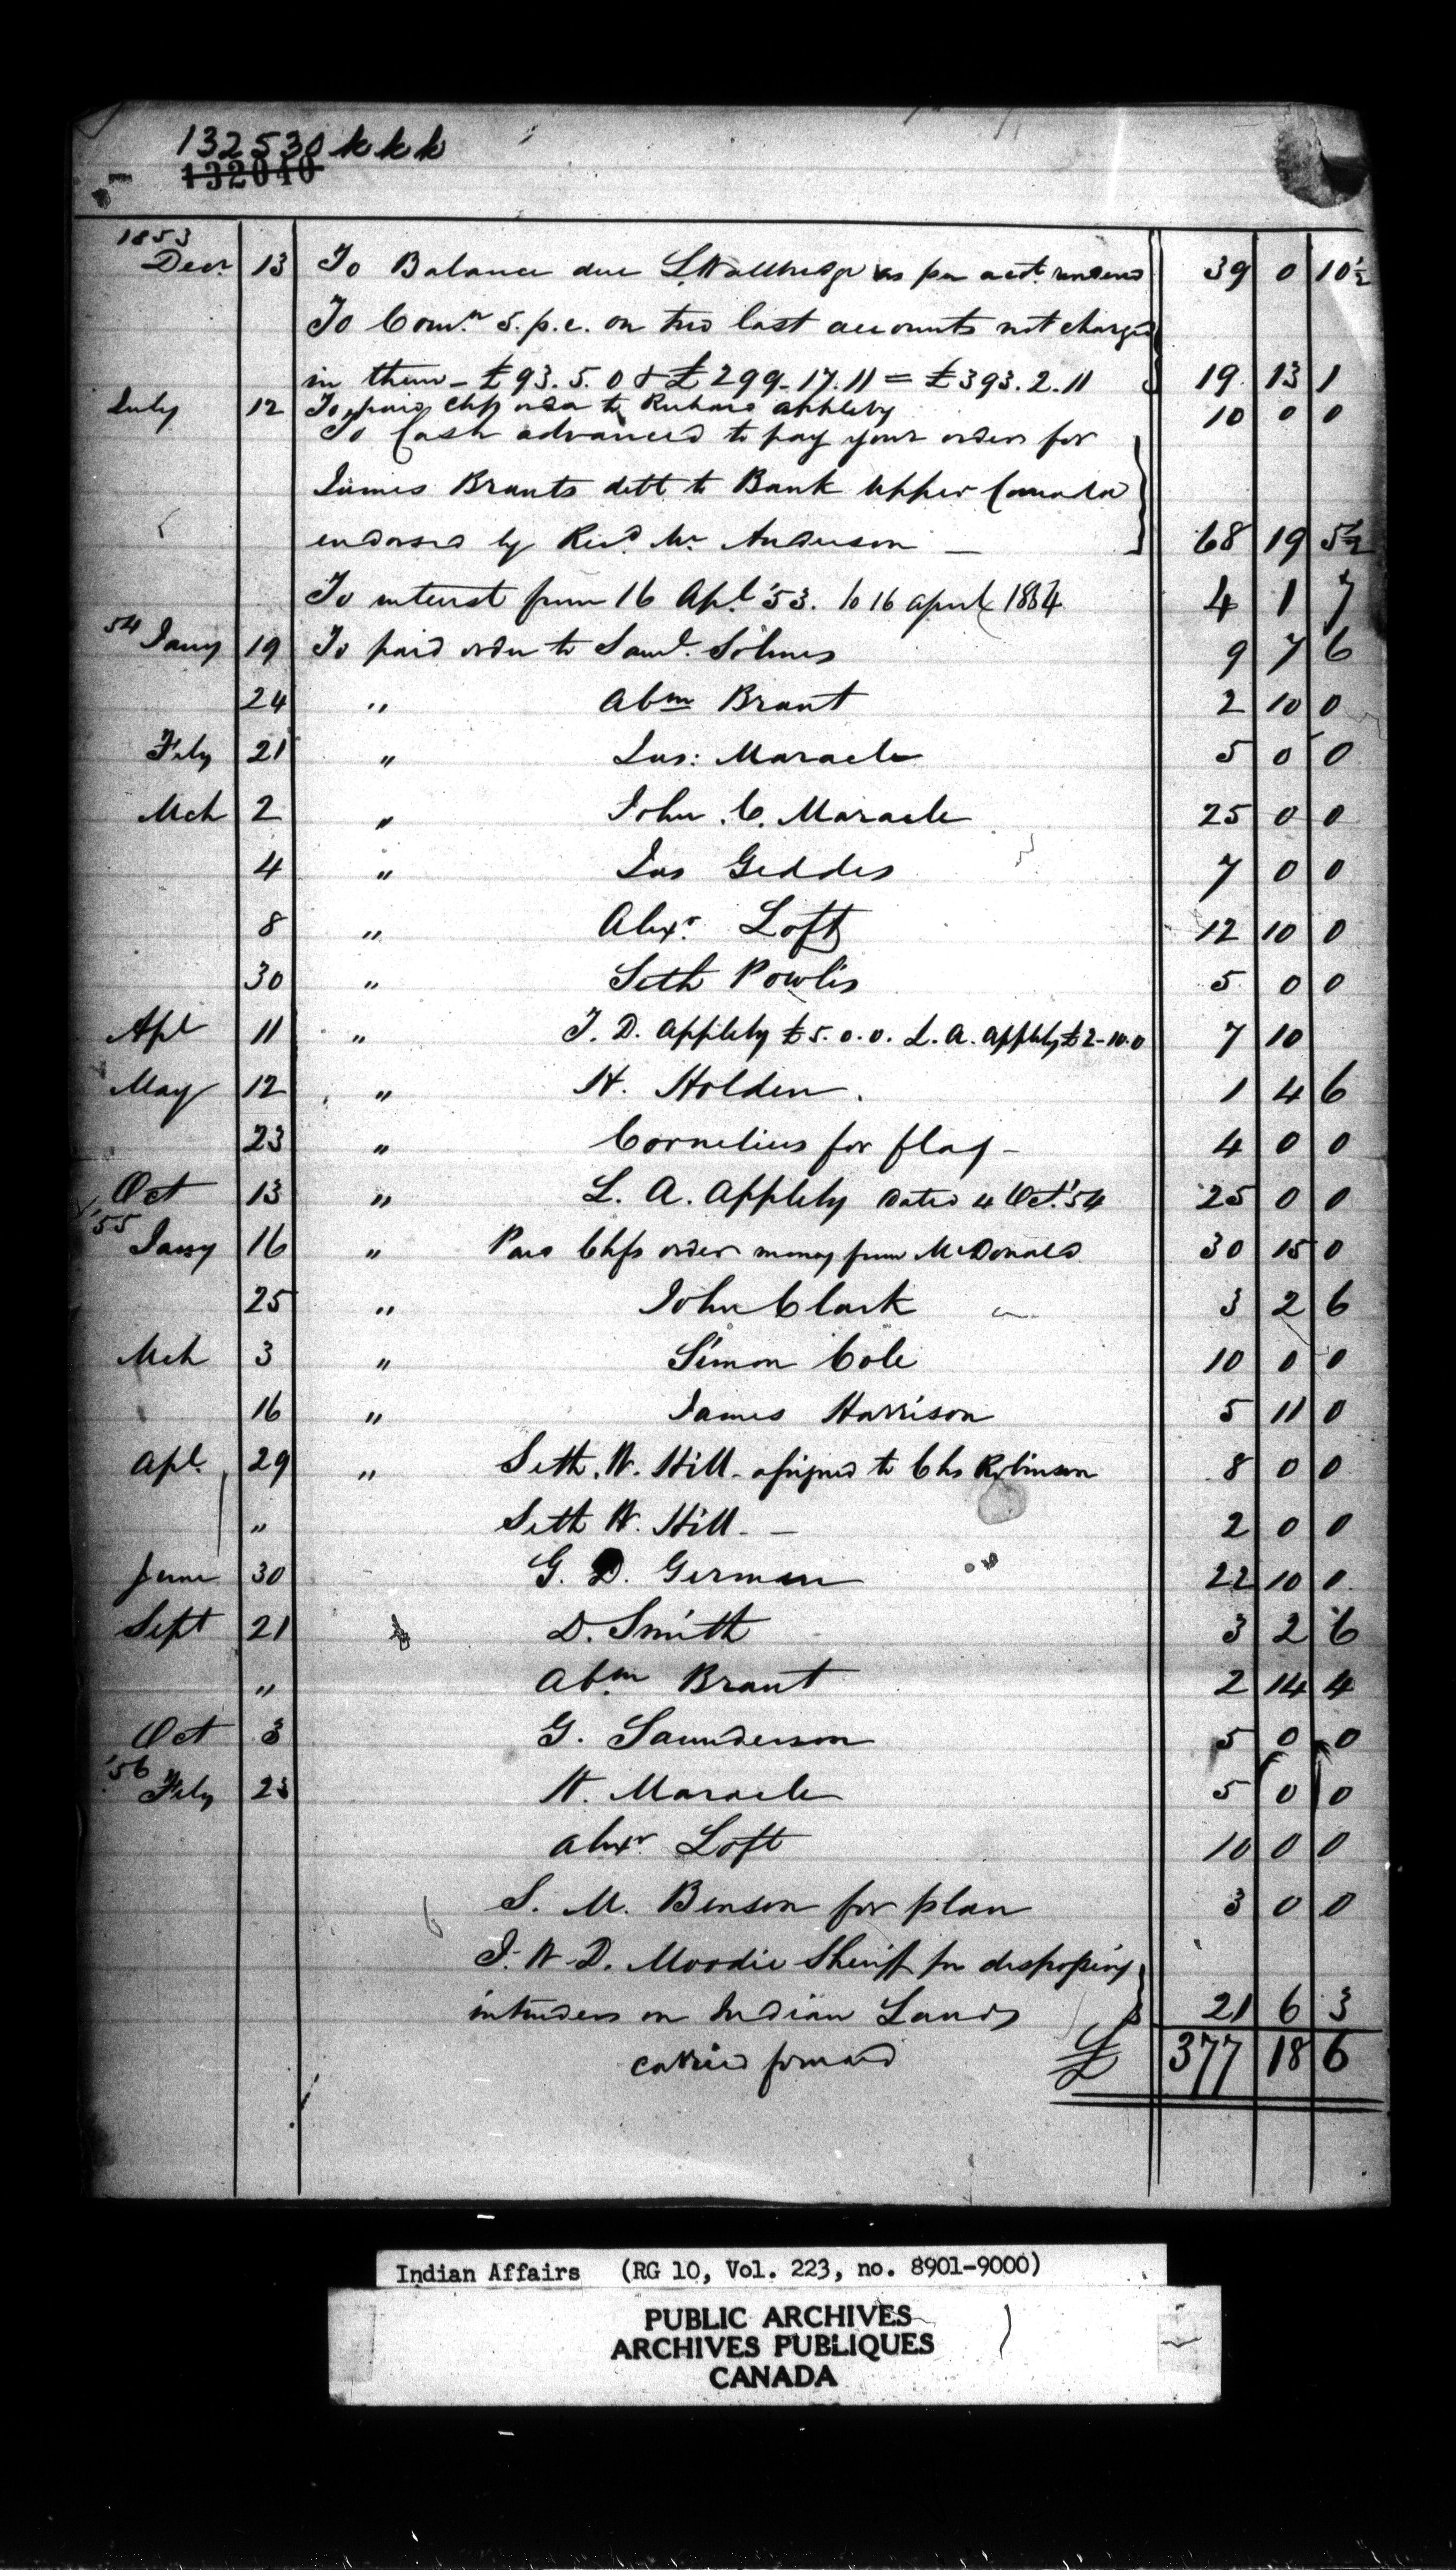 132530 kkk
132040
1853
Decr 13 To Balance due L. Wallbridge as per acct. rendered 39 0 10½
To Comn. 5. p. c. on two last accounts not charged
in them - £93. 5. 0 & £299. 17. 11 = £393. 2. 11 19 13 1
July 12 To paid Chfs order to Richard Appleby 10 0 0
To Cash advanced to pay your order for
James Brants debt to Bank Upper Canada
endorsed by Revd. Mr Anderson — 68 19 5½
To interest from 16 Apl. '53. to 16 April 1854 4 1 7
54 Jany 19 To paid order to Saml. Solmes 9 7 6
24 " Abm Brant 2 10 0
Feby 21 " Jas: Maracle 5 0 0
Mch 2 " John. C. Maracle 25 0 0
4 " Jas Geddes 7 0 0
8 " Alexr. Loft 12 10 0
30 " Seth Powlis 5 0 0
Apl 11 " T. D. Appleby £5. 0. 0. L. A. Appleby £2-10.0 7 10
May 12 " H. Holden. 1 4 6
23 " Cornelius for flag - 4 0 0
Oct 13 " L. A. Appleby dated 4 Oct. '54 25 0 0
'55 Jany 16 " Paid Chfs order money from McDonald 30 15 0
25 " John Clark 3 2 6
Mch 3 " Simon Cole 10 0 0
16 " James Harrison 5 11 0
Apl. 29 " Seth. W. Hill - assigned to Chs Robinson 8 0 0
" Seth W. Hill - — 2 0 0
June 30 G. D. German 22 10 0
Sept 21 D. Smith 3 2 6
" Abm Brant 2 14 4
Oct 3 G. Saunderson 5 0 0
'56 Feby 23 W. Maracle 5 0 0
Alexr Loft 10 0 0
S. M. Benson for plan 3 0 0
J. W. D. Moodie Sheriff for dispossing
intruders on Indian Lands 21 6 3
carried forward £ 377 18 6
Indian Affairs (RG 10, Vol. 223, no. 8901-9000)
PUBLIC ARCHIVES
ARCHIVES PUBLIQUES
CANADA